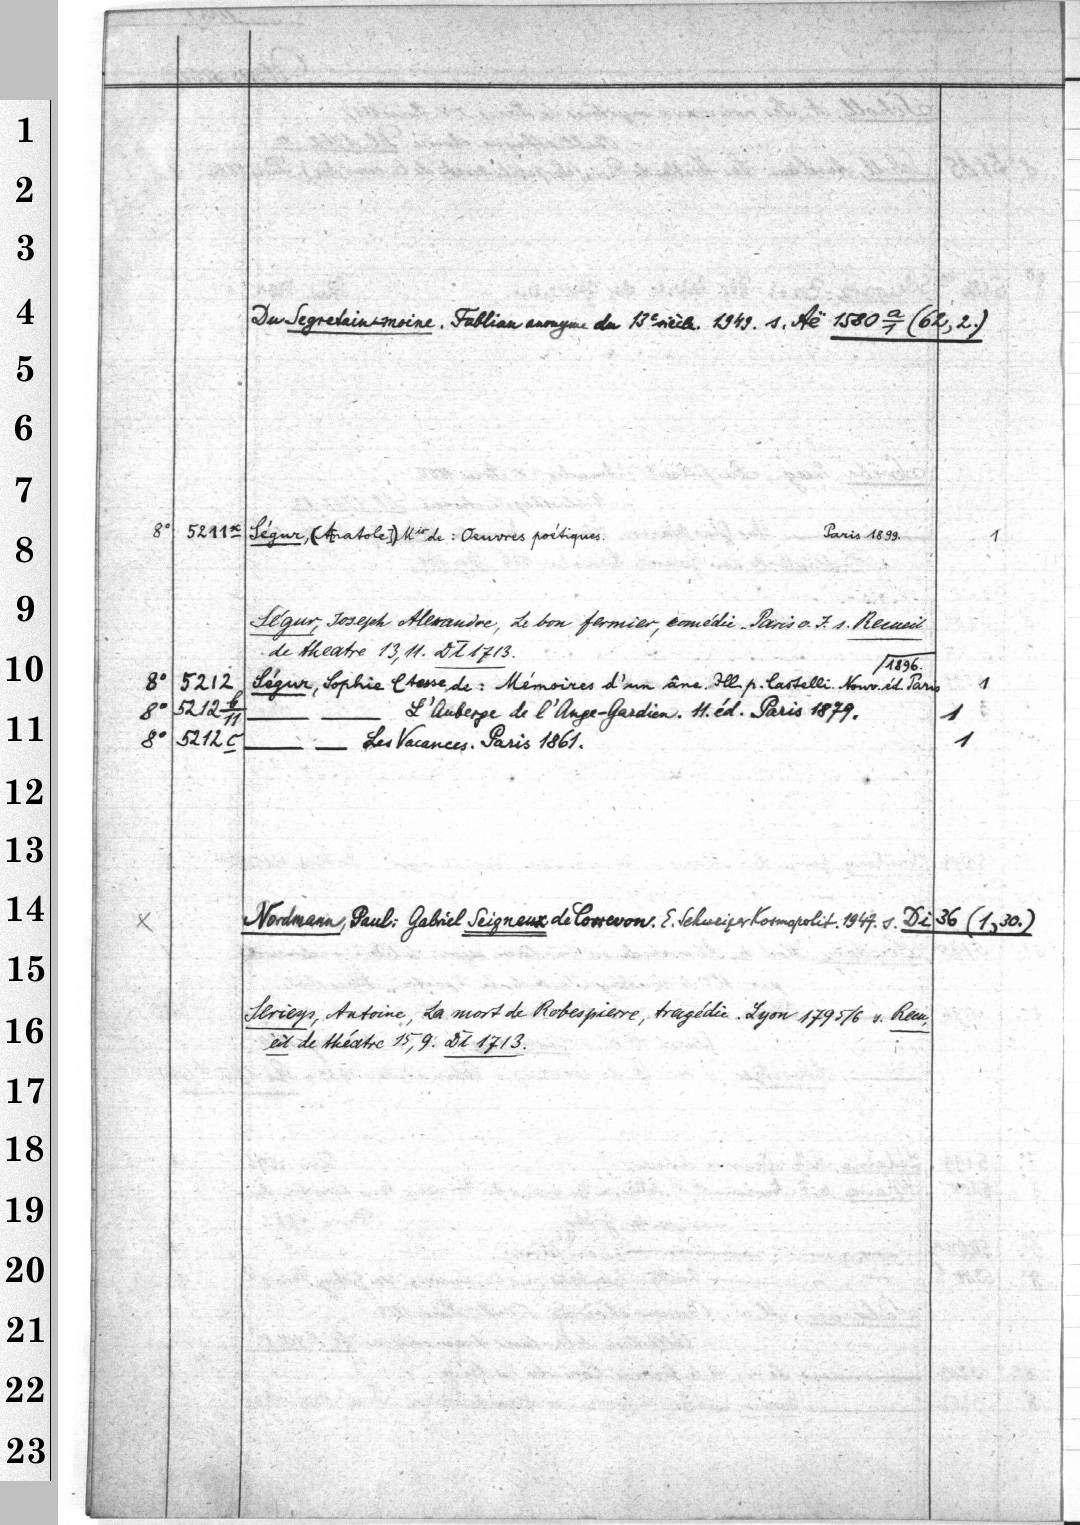 1
2
3
4
Du Segretain-moine. Fabliau anonyme du 13e siècle. 1949. s. Aë 1580 a/1 (62, 2.)
5
6
7
8
8° 5211x Ségur, (Anatole]) Mis de : Oeuvres poétiques. Paris 1899. 1
9
Ségur, Joseph Alexandre, Le bon fermier, comédie. Paris o. J. s. Recueil
10
de théatre 13,11. DI 1713.
1896.
8° 5212 Ségur, Sophie Ctesse de : Mémoires d'un âne. Ill. p. Castelli. Nouv. éd. Paris 1
8° 5212 b/11 —— —— L'Auberge de l'Ange-Gardien. 11. éd. Paris 1879. 1
11
8° 5212 c —— — Les Vacances. Paris 1861. 1
12
13
14
x Nordmann, Paul: Gabriel Seigneux de Correvon. E. Schweizer Kosmopolit. 1947. s. Di 36 (1, 30.)
15
Serieys, Antoine, La mort de Robespierre, tragédie. Lyon 1795/6 s. Recu,
16
eil de théatre 15,9. DI 1713.
17
18
19
20
21
22
23